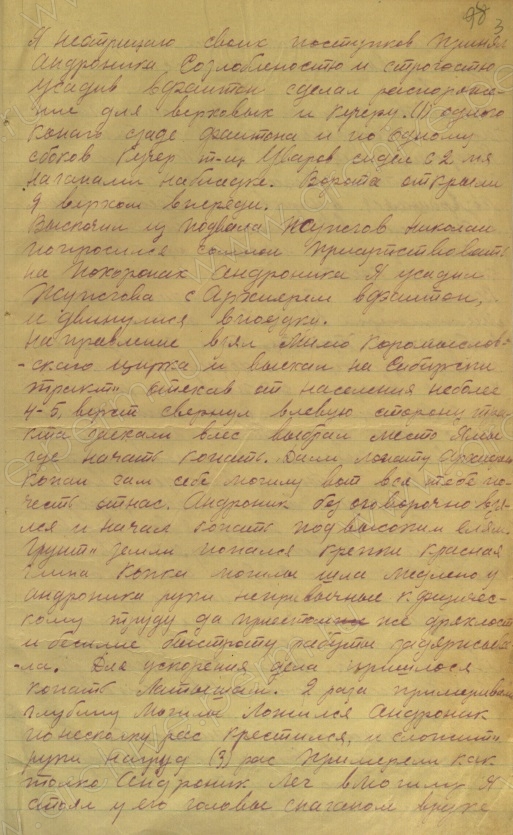 98 3
Я неотрицаю своих поступков принял
Андроника Созлобеностю и строгостю
Усадив вфаитон сделал распоряже-
ние для верховых и кучеру. (1) одного
конаго сзаде фаитона и по одному
сбоков Кучер т-щ Уваров сидел с 2 мя
наганами набиседке. Ворота открыли
я верхом впереди.
Выскочил из подвала Жужгов Николаи
попросился сомной присутствовать
на Похоронах Андроника Я усадил
Жужгова с Архиереем вфаитон,
и двинулися впоездку.
направление взял Мимо Коромыслов-
-скаго цирка и выехал на Сибирски
тракт отехав от населения неболее
4-5, верст свернул влевую сторону тра
кта проехали влес выбрал место Ямы
где начать копать. Дали лопату Архиерею
копаи сам себе могилу вот вся тебе по-
честь отнас. Андроник безоговорочно взя-
лся и начал копать под высокои елям.
Грунт земли попался крепки красная
глина Копка могилы шла медлено у
андроника руки непривычные к физичес-
кому труду да при его же дряхлости
и бесилие быстроту работы задержыва-
-ла. Для ускорения дела пришлося
копать Латышам. 2 раза примеривали
глубину Могилы Ложился Андроник
понесколку рас крестился, и сложит
руки нагруд (3) рас Примерели как
толко Андроник лег вмогилу Я
стоял у его головы снаганом вруке